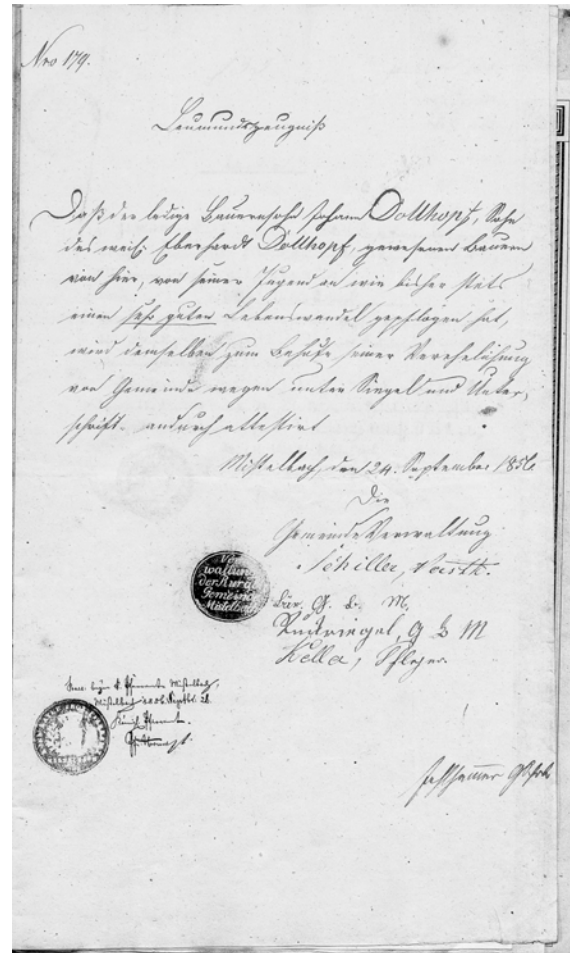 Nro 179.
Leumundszeugniß
Daß der ledige Bauernsohn Johann Dollhopf, Sohn
des weil. Eberhardt Dollhopf, gewesenen Bauern
von hier, von seiner Jugend an wie bisher stets
einen sehr guten Lebenswandel gepflogen hat,
wird demselben zum Behufe seiner Verehelichung
von Gemeinde wegen unter Siegel und Unter,
schrift andurch attestirt
Mistelbach, den 24. September 1856
Die
Gemeinde Verwaltung
Schiller, Vorsth.
Ver
waltung
der Rural
Gemeinde
Mistelbach
G. B. M.
Ruckriegel, G B M
Pfleger
Mistelbach,
Mistelbach